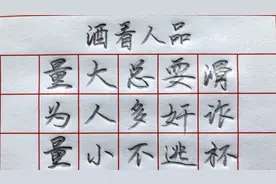 酒看人品
量大总耍滑
为人多奸诈
量小不逃杯